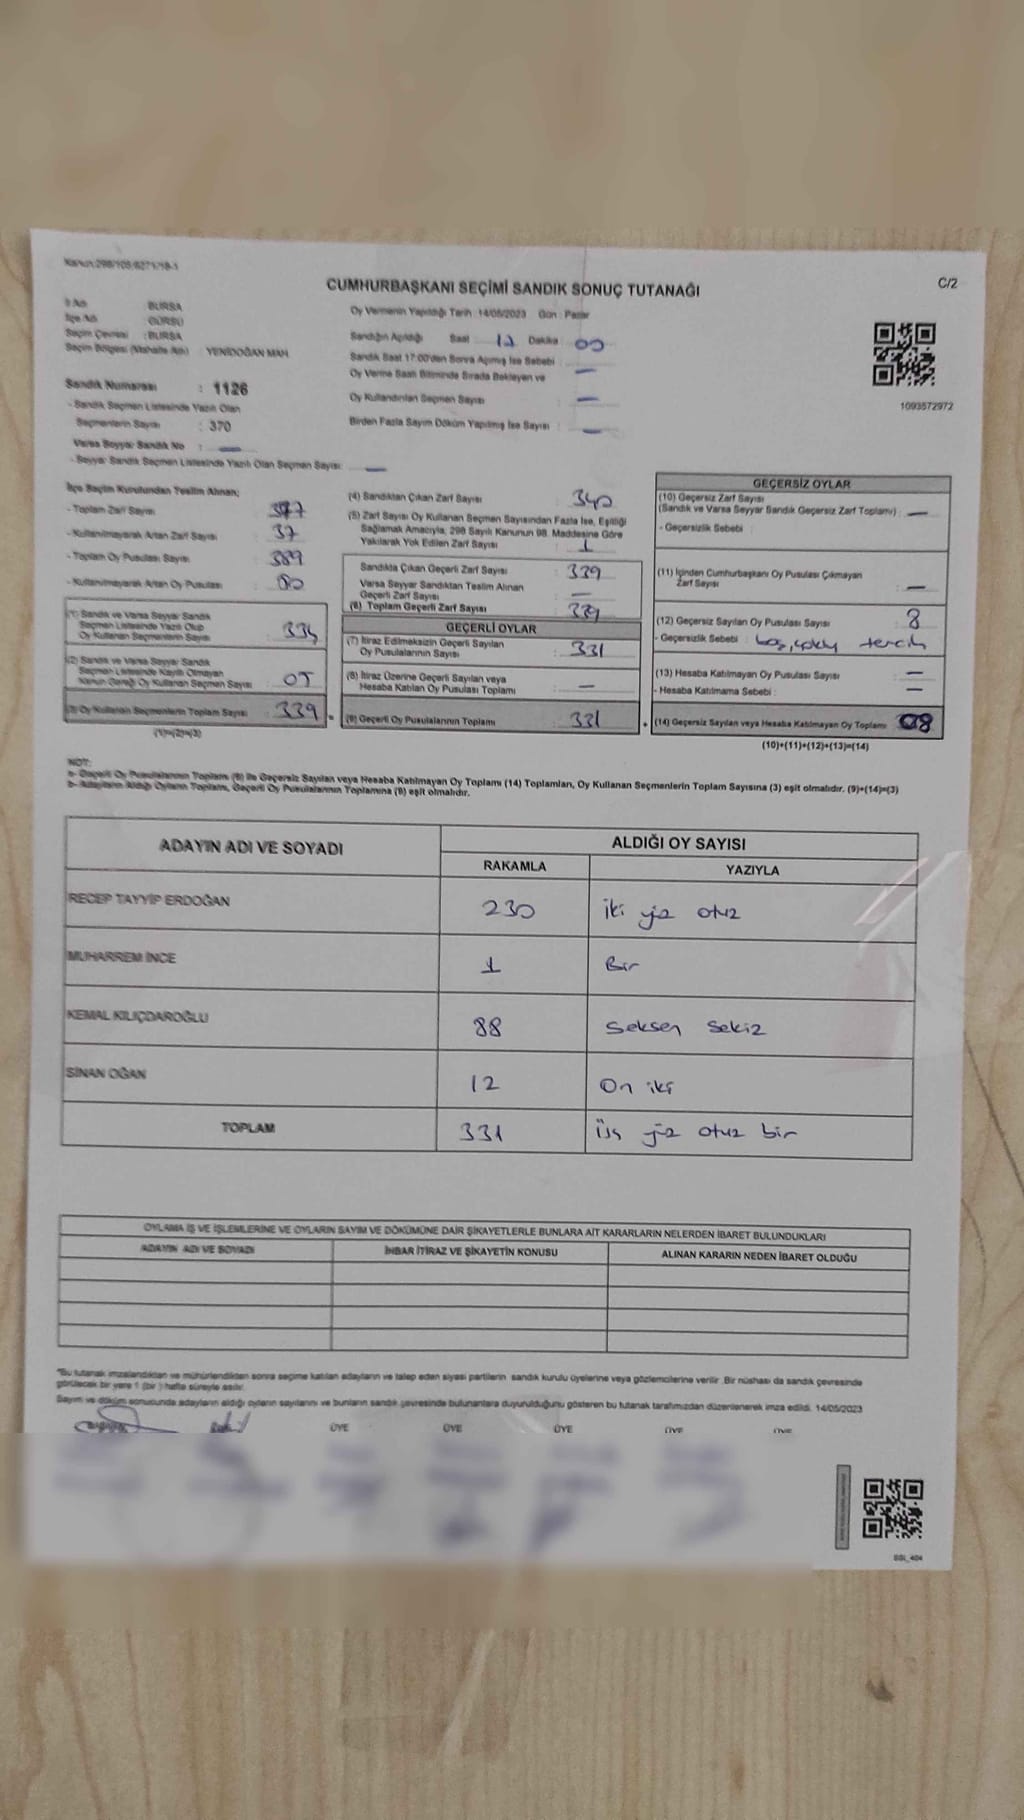 Kanun:298/105/6271/18-1
CUMHURBAŞKANI SEÇİMİ SANDIK SONUÇ TUTANAĞI
C/2
İl Adı : BURSA
İlçe Adı : GÜRSU
Seçim Çevresi : BURSA
Seçim Bölgesi (Mahalle Adı) : YENİDOĞAN MAH.
Sandık Numarası : 1126
- Sandık Seçmen Listesinde Yazılı Olan
Seçmenlerin Sayısı : 370
Varsa Seyyar Sandık No : —
- Seyyar Sandık Seçmen Listesinde Yazılı Olan Seçmen Sayısı: —
Oy Vermenin Yapıldığı Tarih :14/05/2023 Gün : Pazar
Sandığın Açıldığı Saat : Dakika : 00
Sandık Saat 17:00'den Sonra Açılmış İse Sebebi :
Oy Verme Saati Bitiminde Sırada Bekleyen ve —
Oy Kullandırılan Seçmen Sayısı : —
Birden Fazla Sayım Döküm Yapılmış İse Sayısı : —
1093572972
İlçe Seçim Kurulundan Teslim Alınan;
- Toplam Zarf Sayısı : 377
- Kullanılmayarak Artan Zarf Sayısı : 37
- Toplam Oy Pusulası Sayısı : 389
- Kullanılmayarak Artan Oy Pusulası :
(1) Sandık ve Varsa Seyyar Sandık
Seçmen Listesinde Yazılı Olup
Oy Kullanan Seçmenlerin Sayısı : 334
(2) Sandık ve Varsa Seyyar Sandık
Seçmen Listesinde Kayıtlı Olmayan
Kanun Gereği Oy Kullanan Seçmen Sayısı : 05
(3) Oy Kullanan Seçmenlerin Toplam Sayısı : 339
(1)+(2)=(3)
(4) Sandıktan Çıkan Zarf Sayısı : 340
(5) Zarf Sayısı Oy Kullanan Seçmen Sayısından Fazla İse, Eşitliği
Sağlamak Amacıyla; 298 Sayılı Kanunun 98. Maddesine Göre
Yakılarak Yok Edilen Zarf Sayısı : 1
Sandıkta Çıkan Geçerli Zarf Sayısı : 339
Varsa Seyyar Sandıktan Teslim Alınan
Geçerli Zarf Sayısı : —
(6) Toplam Geçerli Zarf Sayısı : 339
GEÇERLİ OYLAR
(7) İtiraz Edilmeksizin Geçerli Sayılan
Oy Pusulalarının Sayısı : 331
(8) İtiraz Üzerine Geçerli Sayılan veya
Hesaba Katılan Oy Pusulası Toplamı : —
(9) Geçerli Oy Pusulalarının Toplamı : 331
GEÇERSİZ OYLAR
(10) Geçersiz Zarf Sayısı
(Sandık ve Varsa Seyyar Sandık Geçersiz Zarf Toplamı) : —
- Geçersizlik Sebebi :
(11) İçinden Cumhurbaşkanı Oy Pusulası Çıkmayan
Zarf Sayısı : —
(12) Geçersiz Sayılan Oy Pusulası Sayısı : 8
- Geçersizlik Sebebi : boş, çoklu tercih
(13) Hesaba Katılmayan Oy Pusulası Sayısı : —
- Hesaba Katılmama Sebebi : —
(14) Geçersiz Sayılan veya Hesaba Katılmayan Oy Toplamı : 08
(10)+(11)+(12)+(13)=(14)
NOT:
a- Geçerli Oy Pusulalarının Toplamı (9) ile Geçersiz Sayılan veya Hesaba Katılmayan Oy Toplamı (14) Toplamları, Oy Kullanan Seçmenlerin Toplam Sayısına (3) eşit olmalıdır. (9)+(14)=(3)
b- Adayların Aldığı Oyların Toplamı, Geçerli Oy Pusulalarının Toplamına (9) eşit olmalıdır.
ADAYIN ADI VE SOYADI
ALDIĞI OY SAYISI
RAKAMLA
YAZIYLA
RECEP TAYYİP ERDOĞAN 230 iki yüz otuz
MUHARREM İNCE 1 Bir
KEMAL KILIÇDAROĞLU 88 Seksen Sekiz
SİNAN OĞAN 12 On iki
TOPLAM 331 Üç yüz otuz bir
OYLAMA İŞ VE İŞLEMLERİNE VE OYLARIN SAYIM VE DÖKÜMÜNE DAİR ŞİKAYETLERLE BUNLARA AİT KARARLARIN NELERDEN İBARET BULUNDUKLARI
ADAYIN ADI VE SOYADI
İHBAR İTİRAZ VE ŞİKAYETİN KONUSU
ALINAN KARARIN NEDEN İBARET OLDUĞU
*Bu tutanak imzalandıktan ve mühürlendikten sonra seçime katılan adayların ve talep eden siyasi partilerin sandık kurulu üyelerine veya gözlemcilerine verilir. Bir nüshası da sandık çevresinde
görülecek bir yere 1 (bir ) hafta süreyle asılır.
Sayım ve döküm sonucunda adayların aldığı oyların sayılarını ve bunların sandık çevresinde bulunanlara duyurulduğunu gösteren bu tutanak tarafımızdan düzenlenerek imza edildi. 14/05/2023
BAŞKAN ÜYE ÜYE ÜYE ÜYE ÜYE